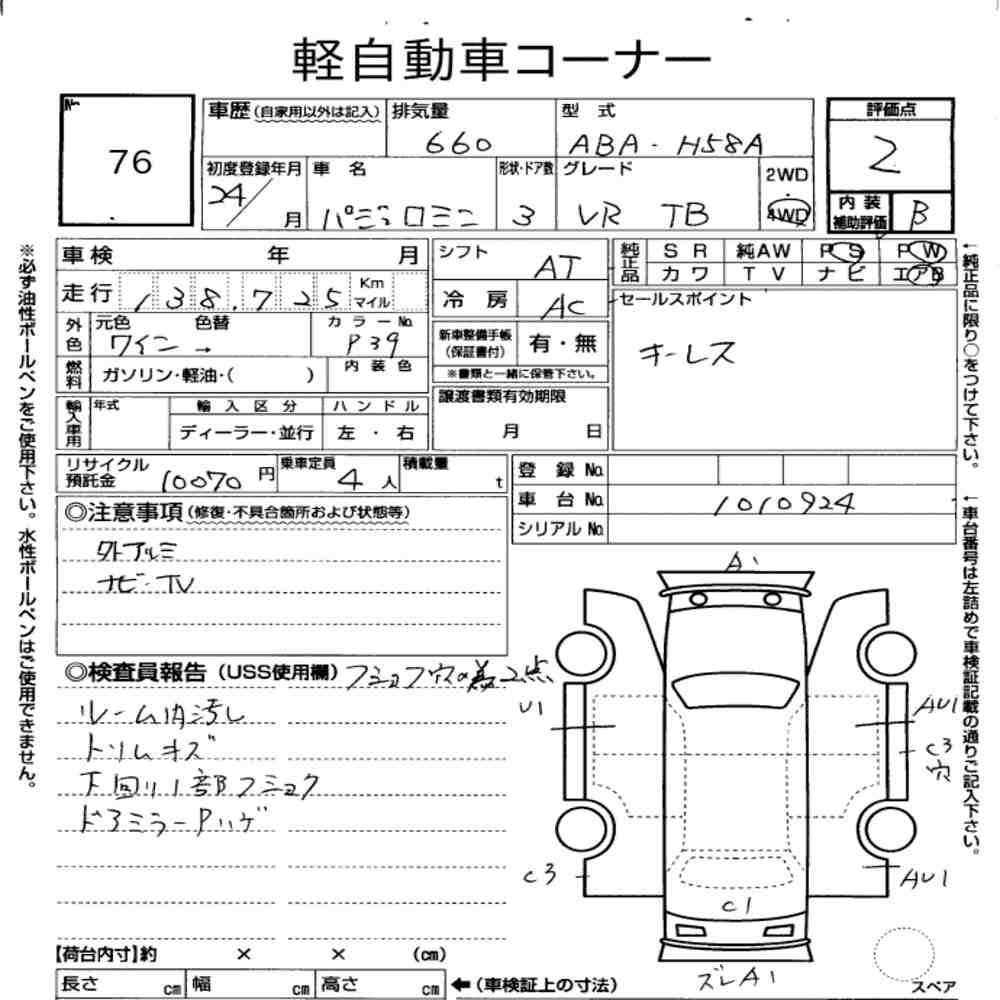 軽自動車コーナー
No.
76
車歴(自家用以外は記入) 排気量 型 式 評価点
660 ABA-H58A 2
初度登録年月 車 名 形状・ドア数 グレード 2WD
24/ 月 パジェロミニ 3 VR TB 4WD
内 装 補助評価 B
車検 年 月 シフト AT
走行 138,725 Km マイル 冷 房 AC
純正品 S R 純AW P S P W
カ ワ T V ナ ビ エアB
セールスポイント
キーレス
外色 元色 色替 カ ラ ー No.
ワイン → P39
新車整備手帳 (保証書付) 有・無
※書類と一緒に保管下さい。
燃料 ガソリン・軽油・( ) 内 装 色
輸入車用 年式 輸 入 区 分 ハ ン ド ル
ディーラー・並行 左 ・ 右
譲渡書類有効期限
月 日
リサイクル預託金 10070 円 乗車定員 4 人 積載量 t
登 録 No.
車 台 No. 1010924
シリアル No.
◎注意事項(修復・不具合箇所および状態等)
外アルミ
ナビ・TV
◎検査員報告(USS使用欄)フショク穴の為2点
ルーム内汚レ
トリムキズ
下回リ1部フショク
ドアミラーPハゲ
A1
U1
AU1
C3
穴
C3
AU1
C1
ズレA1
スペア
【荷台内寸】約 × × (cm)
長さ cm 幅 cm 高さ cm ←(車検証上の寸法)
※必ず油性ボールペンをご使用下さい。水性ボールペンはご使用できません。
←純正品に限り○をつけて下さい。
←車台番号は左詰めで車検証記載の通りご記入下さい。